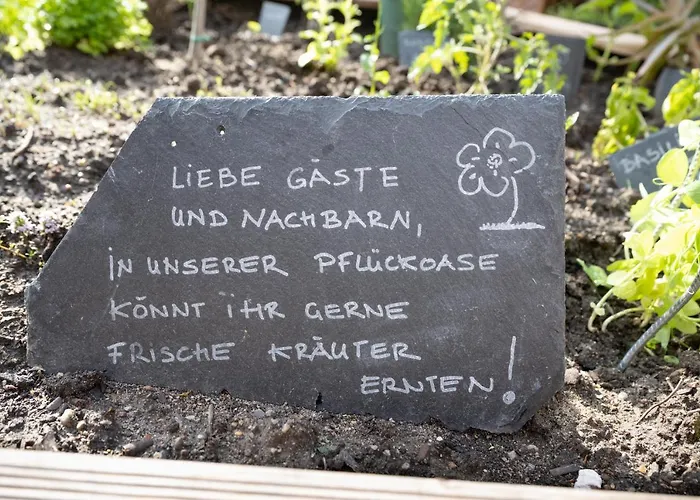 LiEBE GÄSTE
UND NACHBARN,
iN UNSERER PFLÜCKOASE
KÖNNT iHR GERNE
FRiSCHE KRÄUTER
ERNTEN!